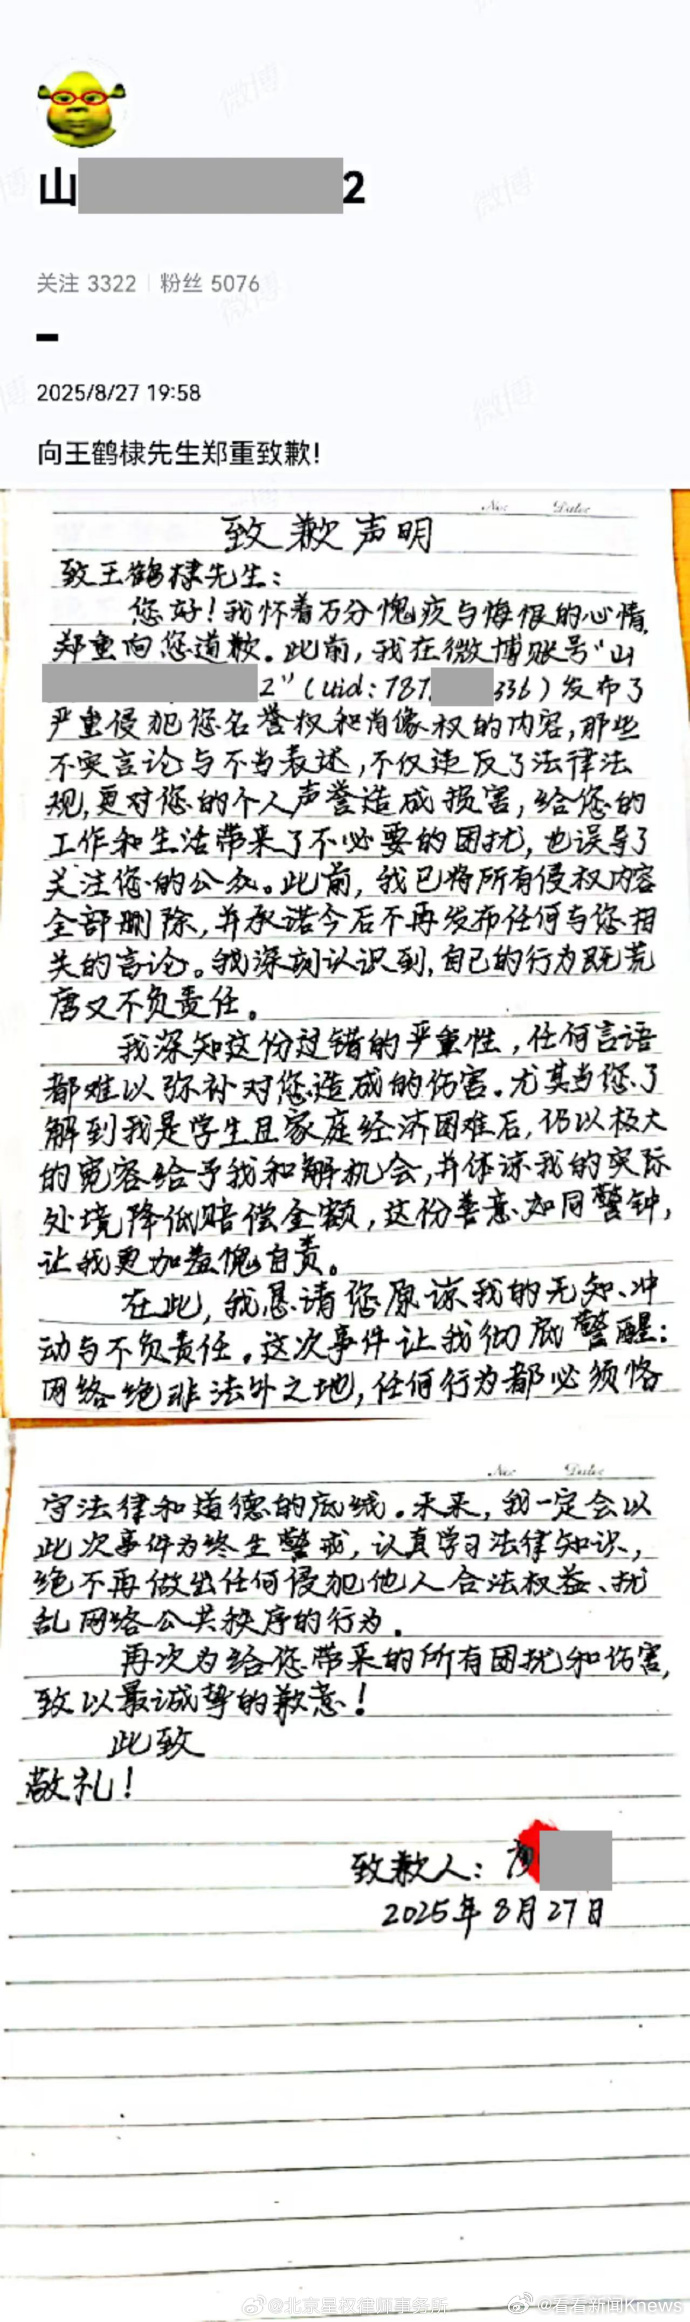 山 2
关注 3322 | 粉丝 5076
2025/8/27 19:58
向王鹤棣先生郑重致歉!
No: Date:
致歉声明
致王鹤棣先生:
您好!我怀着万分愧疚与悔恨的心情,
郑重向您道歉。此前,我在微博账号"山
2"(uid:787 336)发布了
严重侵犯您名誉权和肖像权的内容,那些
不实言论与不当表述,不仅违反了法律法
规,更对您的个人声誉造成损害,给您的
工作和生活带来了不必要的困扰,也误导了
关注您的公众。此前,我已将所有侵权内容
全部删除,并承诺今后不再发布任何与您相
关的言论。我深刻认识到,自己的行为既荒
唐又不负责任。
我深知这份过错的严重性,任何言语
都难以弥补对您造成的伤害。尤其当您了
解到我是学生且家庭经济困难后,仍以极大
的宽容给予我和解机会,并体谅我的实际
处境降低赔偿金额,这份善意如同警钟,
让我更加羞愧自责。
在此,我恳请您原谅我的无知、冲
动与不负责任。这次事件让我彻底警醒:
网络绝非法外之地,任何行为都必须恪
No: Date:
守法律和道德的底线。未来,我一定会以
此次事件为终生警戒,认真学习法律知识,
绝不再做出任何侵犯他人合法权益、扰
乱网络公共秩序的行为.
再次为给您带来的所有困扰和伤害,
致以最诚挚的歉意!
此致
敬礼!
致歉人:
2025年8月27日
@北京星权律师事务所
@看看新闻Knews